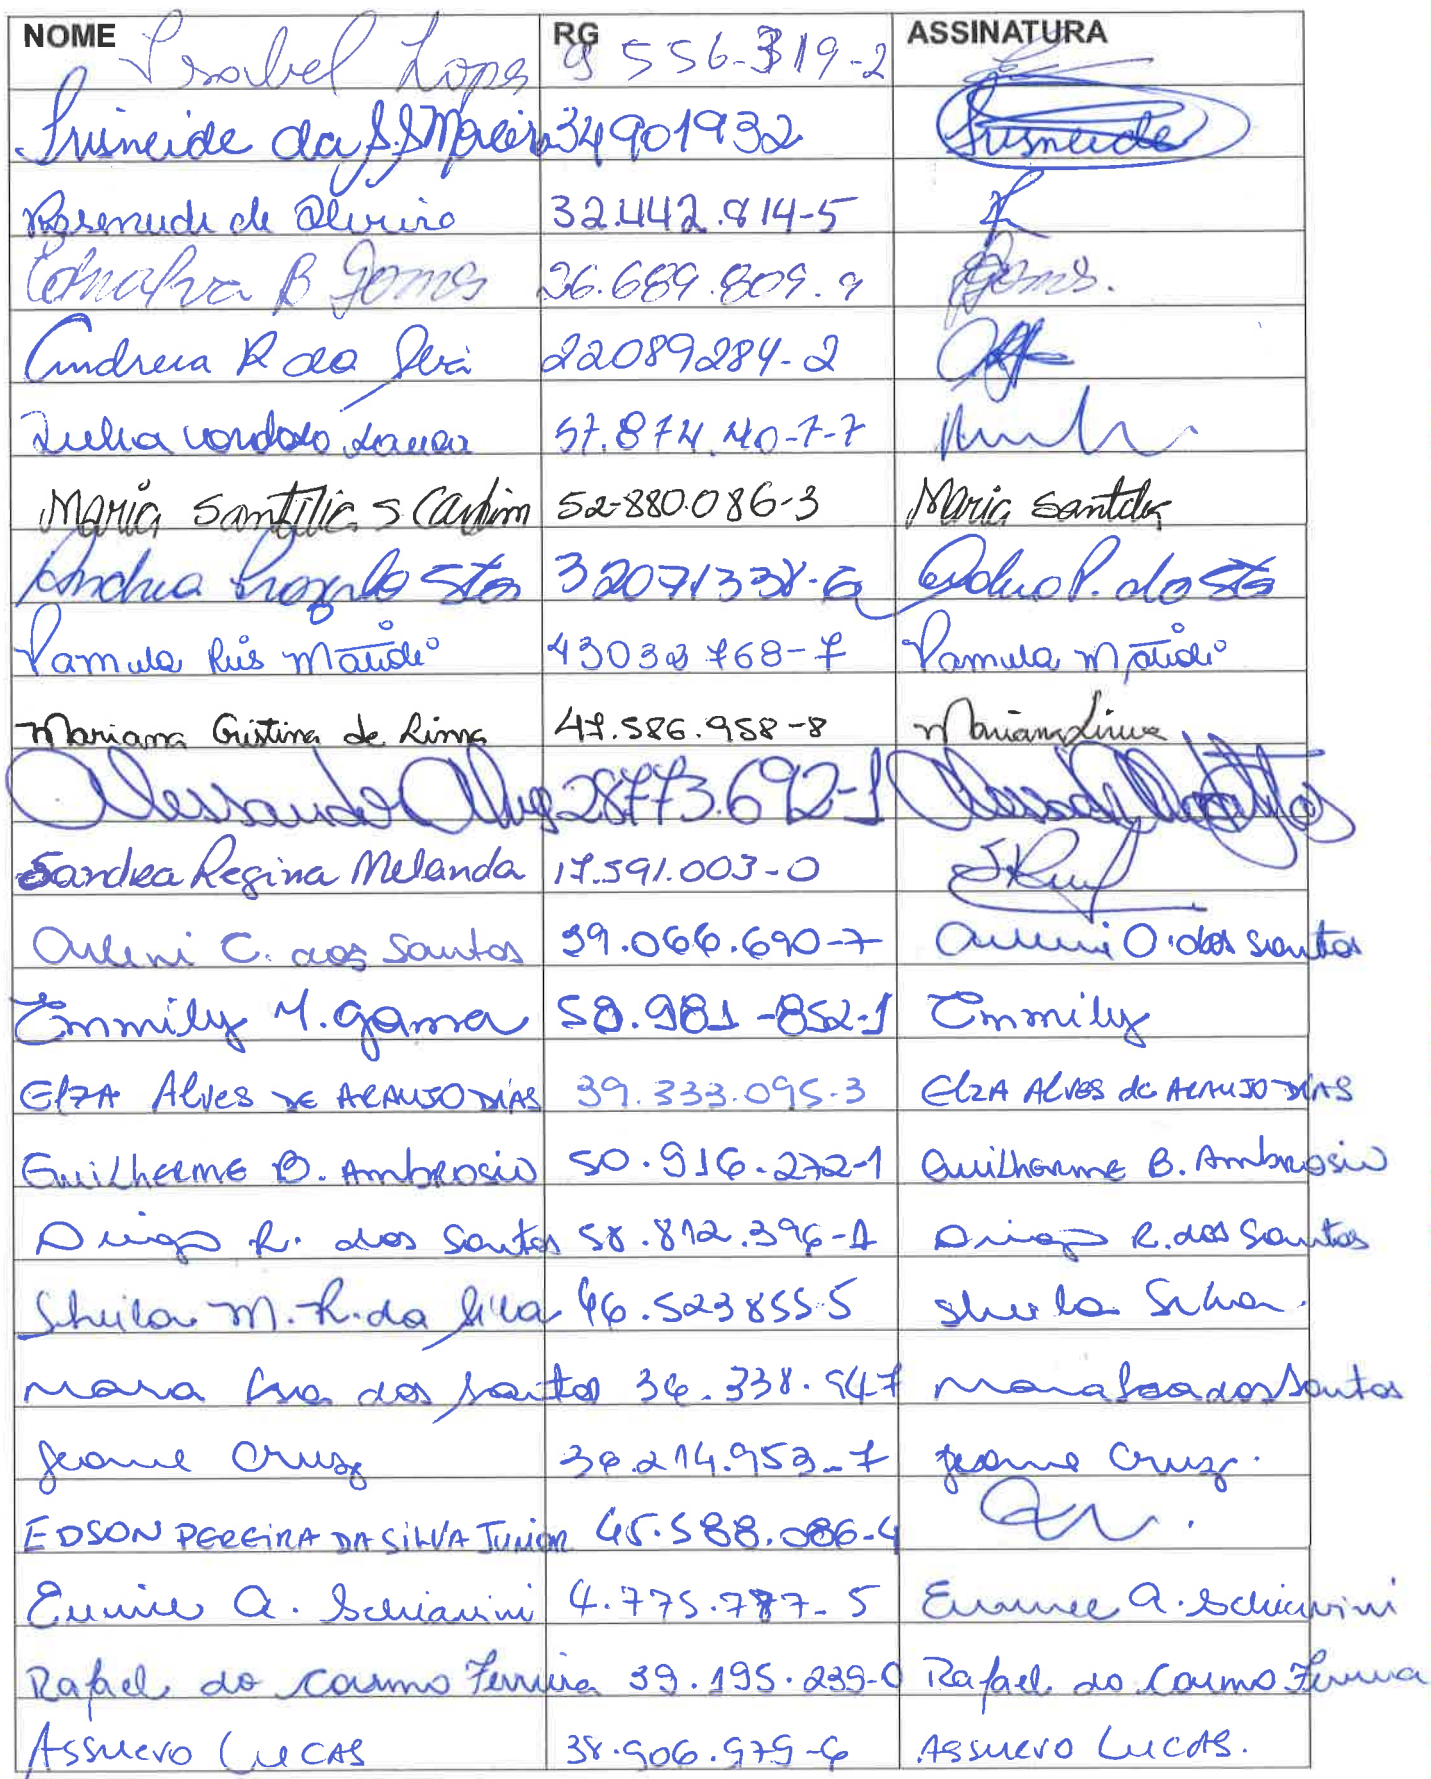 NOME RG ASSINATURA
Isabel Lopes 9 556-319-2
Lusineide da S.S Maceis 34901932 Lusneide
Rosemeide de Oliveira 32.442.814-5
Edinalva B Gomes 26.689.809.9 Gomes.
Andreia R da Silva 22089284-2
57.874.410-7-7
Maria Santilia S Cardim 52-880.086-3 Maria Santilia
Andrea do Stos 32071338-6 P. do Stos
Pamula Ruis 43032768-7 Pamula
Mariana Cristina de Lima 47.586.958-8 Mariana Lima
Alessandro Alves 28773.692-1
Sandra Regina Melanda 17.591.003-0
Arleni C. dos Santos 39.066.690-7 Arleni C. dos Santos
Emmily Y. gama 58.981-852-1 Emmily
ElzA Alves DE ARAUJO DIAS 39.333.095-3 ElzA AlvES de ARAUJO DIAS
Guilherme B. Ambrosio 50.916.272-1 Guilherme B. Ambrosio
Diego R. dos Santos 58.812.396-1 Diego R. dos Santos
Sheila M. R. da Silva 46.5238555 Sheila Silva.
Mara dos Santos 36.338.947 Mara dos Santos
Jeane Cruz 36.214.953-7 Jeane Cruz.
EDSON PEREIRA DA SILVA JUNIOR 45.588.086-4
Eunice A. Schiavini 4.775.787-5 Eunice A. Schiavini
Rafael do Carmo Ferreira 39.195.239-0 Rafael do Carmo Ferreira
Assuero LUCAS 38.906.979-6 Assuero LUCAS.